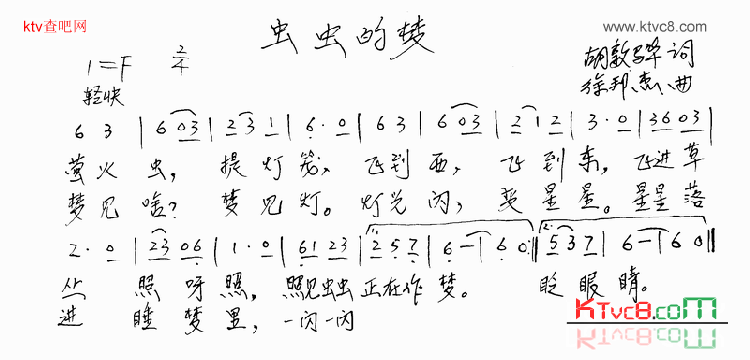 ktv查吧网
www.ktvc8.com
虫虫的梦
1=F 2/4
胡敦骅 词
轻快
徐邦杰 曲
6 3 | 6 0 3 | 2 3 1 | 6 · 0 | 6 3 | 6 0 3 | 2 1 2 | 3 · 0 | 3 6 0 3 |
萤火虫, 提灯笼, 飞到西, 飞到东, 飞进草
梦见啥? 梦见灯。灯光闪, 像星星。星星落
2 · 0 | 2 3 0 6 | 1 · 0 | 6 1 2 3 | 1. 2 5 7 | 6 – | 6 0 :‖ 2. 5 3 7 | 6 – | 6 0 ‖
丛 照呀照, 照见虫虫正在作梦。 眨眼睛。
进 睡梦里, 一闪一闪
KTvc8.com
KTvc8.com